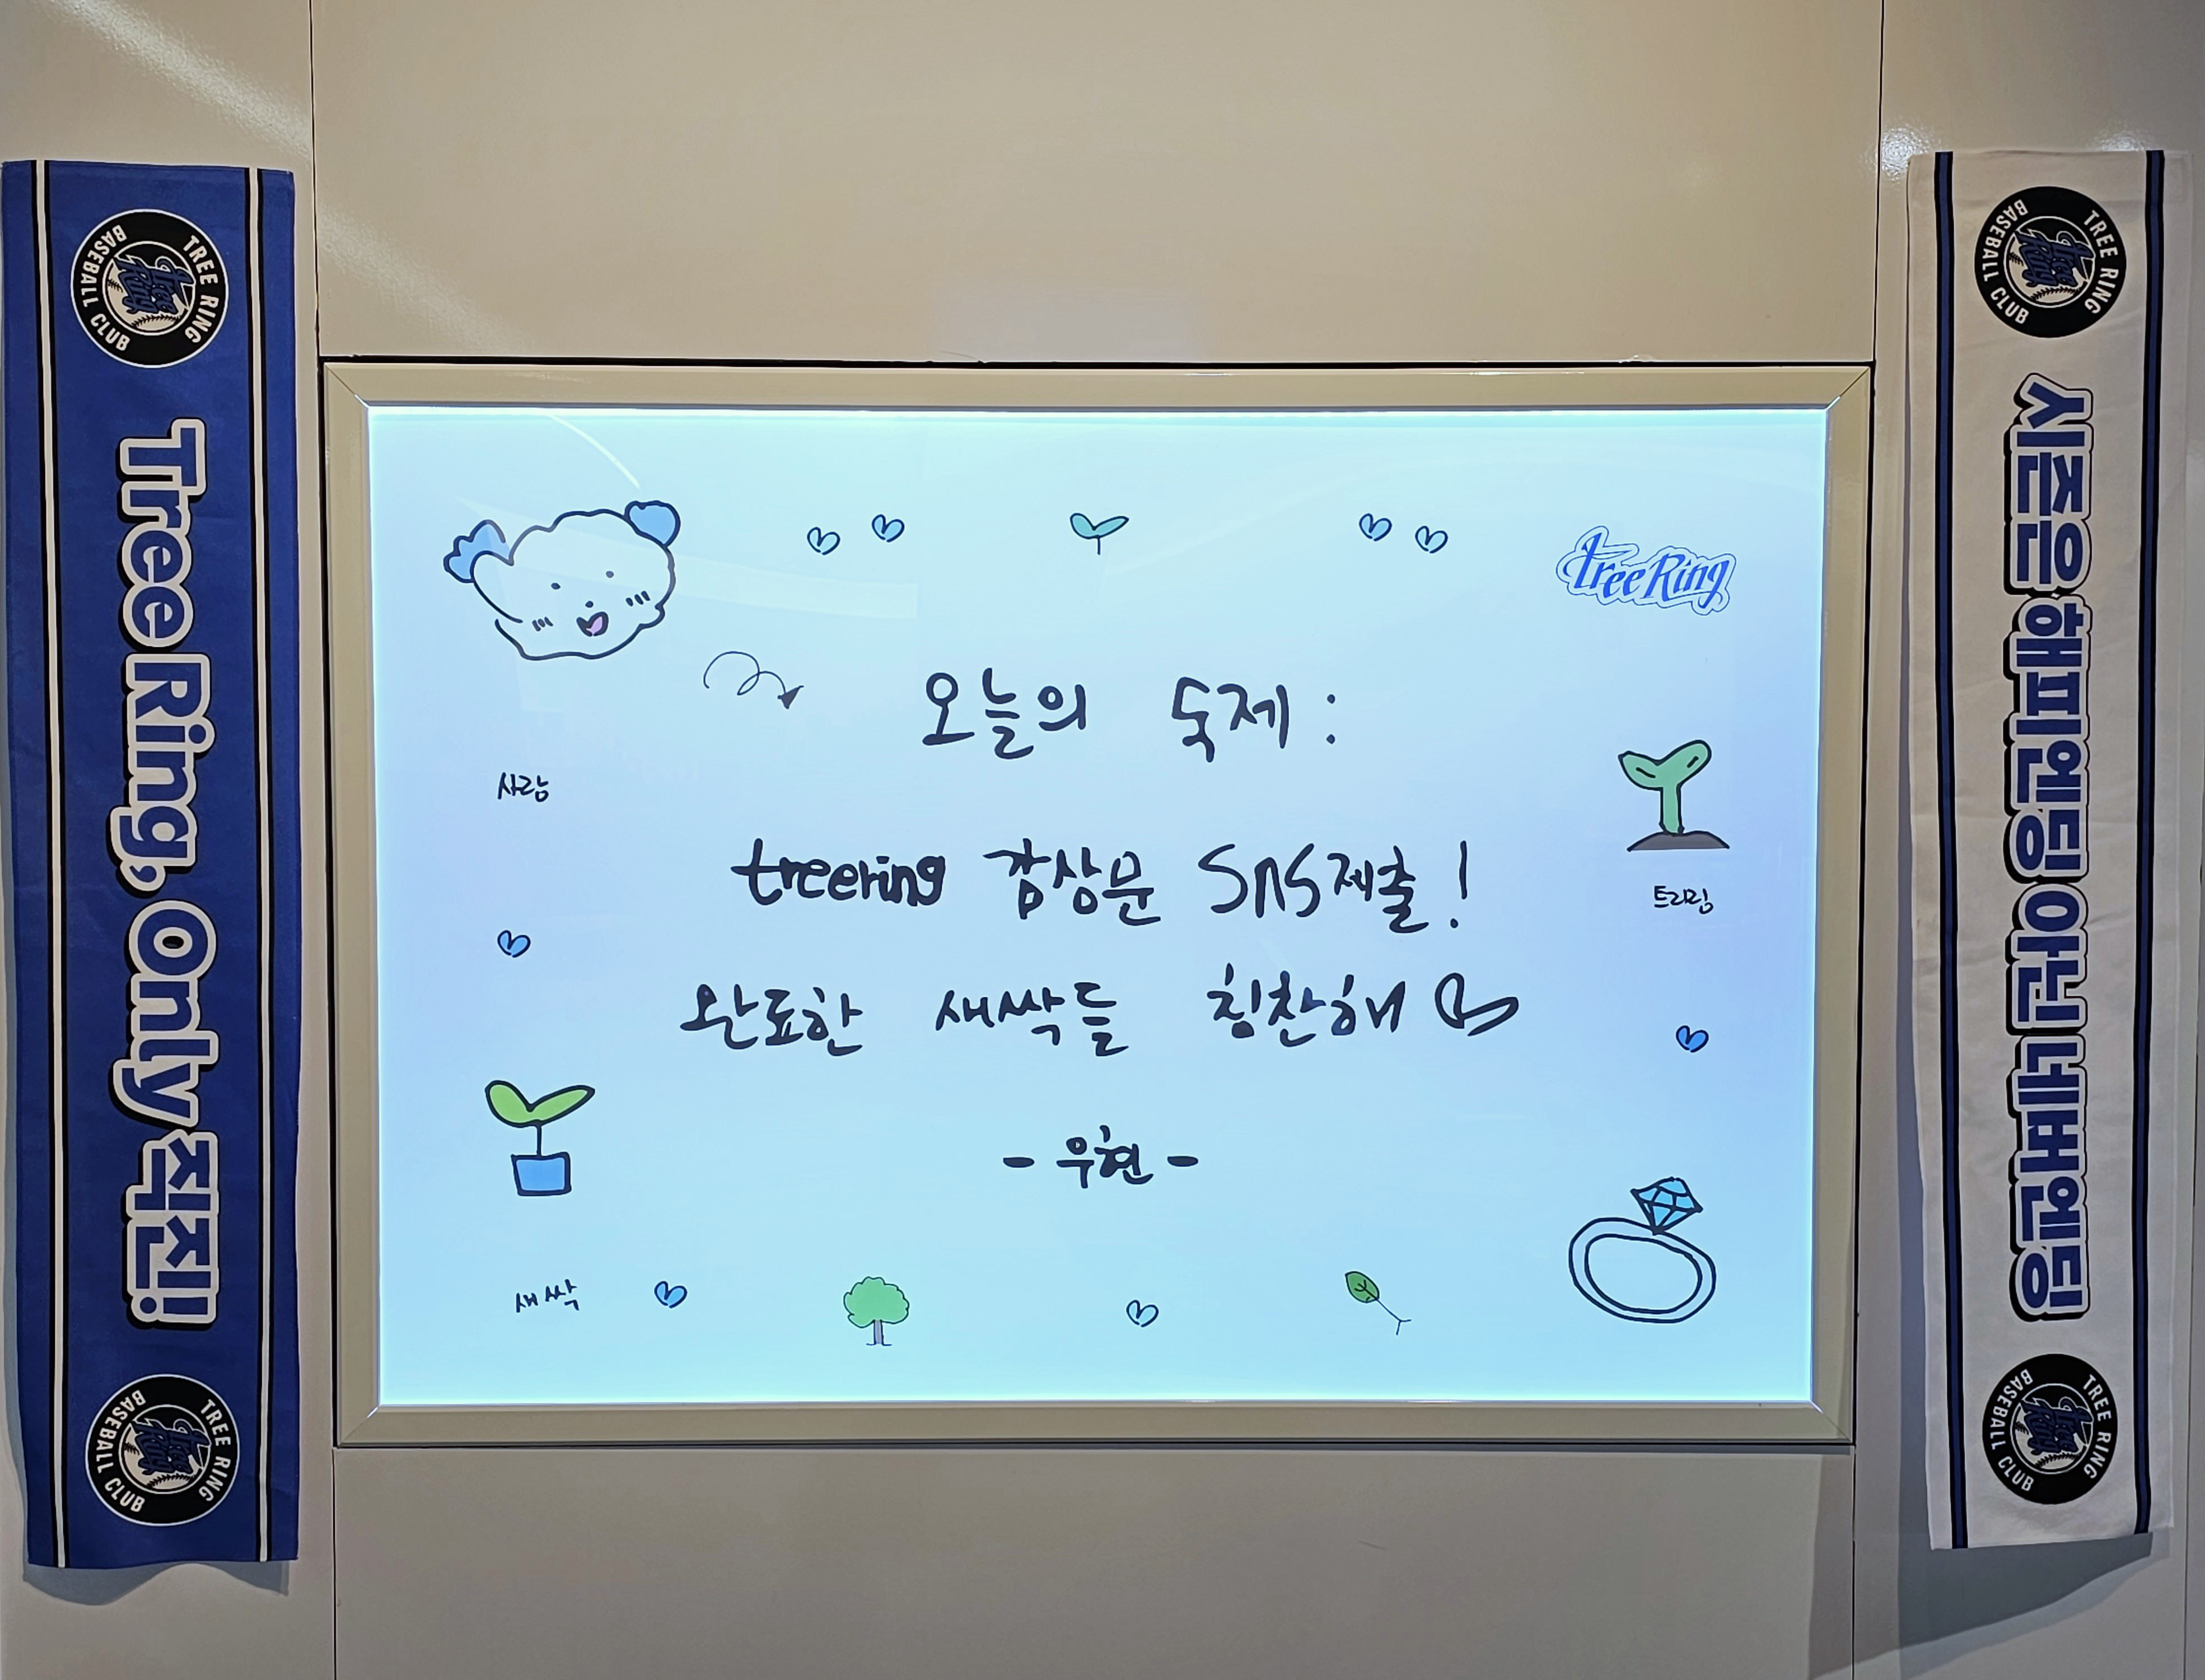 TREE RING
BASEBALL CLUB
Tree Ring, Only 직진!
TREE RING
BASEBALL CLUB
treeRing
오늘의 숙제 :
사랑
treering 감상문 SNS제출!
트리링
완료한 새싹들 칭찬해
- 우현 -
새싹
TREE RING
BASEBALL CLUB
시즌은 해피엔딩 아닌 네버엔딩
TREE RING
BASEBALL CLUB